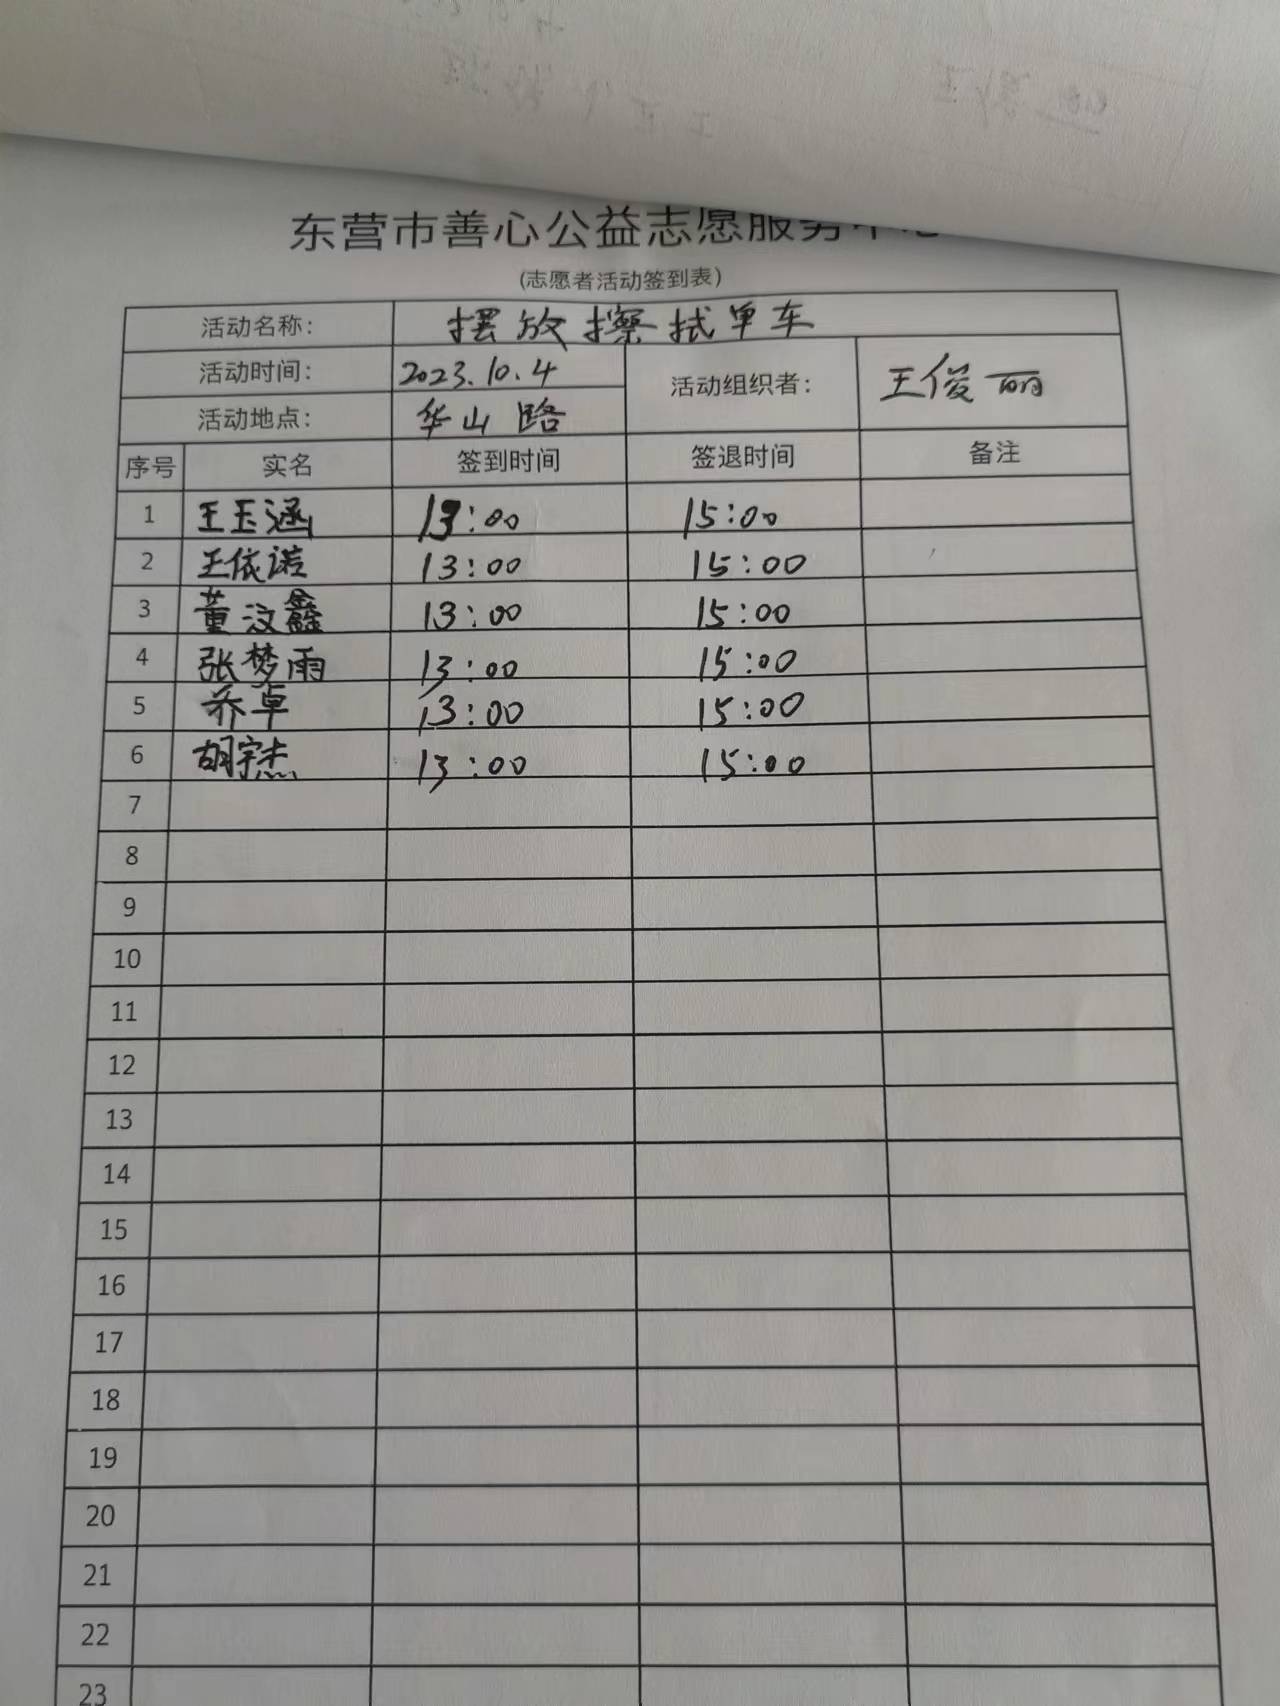 东营市善心公益志愿服务中心
(志愿者活动签到表)
活动名称: 摆放擦拭单车
活动时间: 2023.10.4 活动组织者: 王俊丽
活动地点: 华山路
序号 实名 签到时间 签退时间 备注
1 王玉涵 13:00 15:00
2 王依诺 13:00 15:00
3 董汶鑫 13:00 15:00
4 张梦雨 13:00 15:00
5 乔卓 13:00 15:00
6 胡宇杰 13:00 15:00
7
8
9
10
11
12
13
14
15
16
17
18
19
20
21
22
23